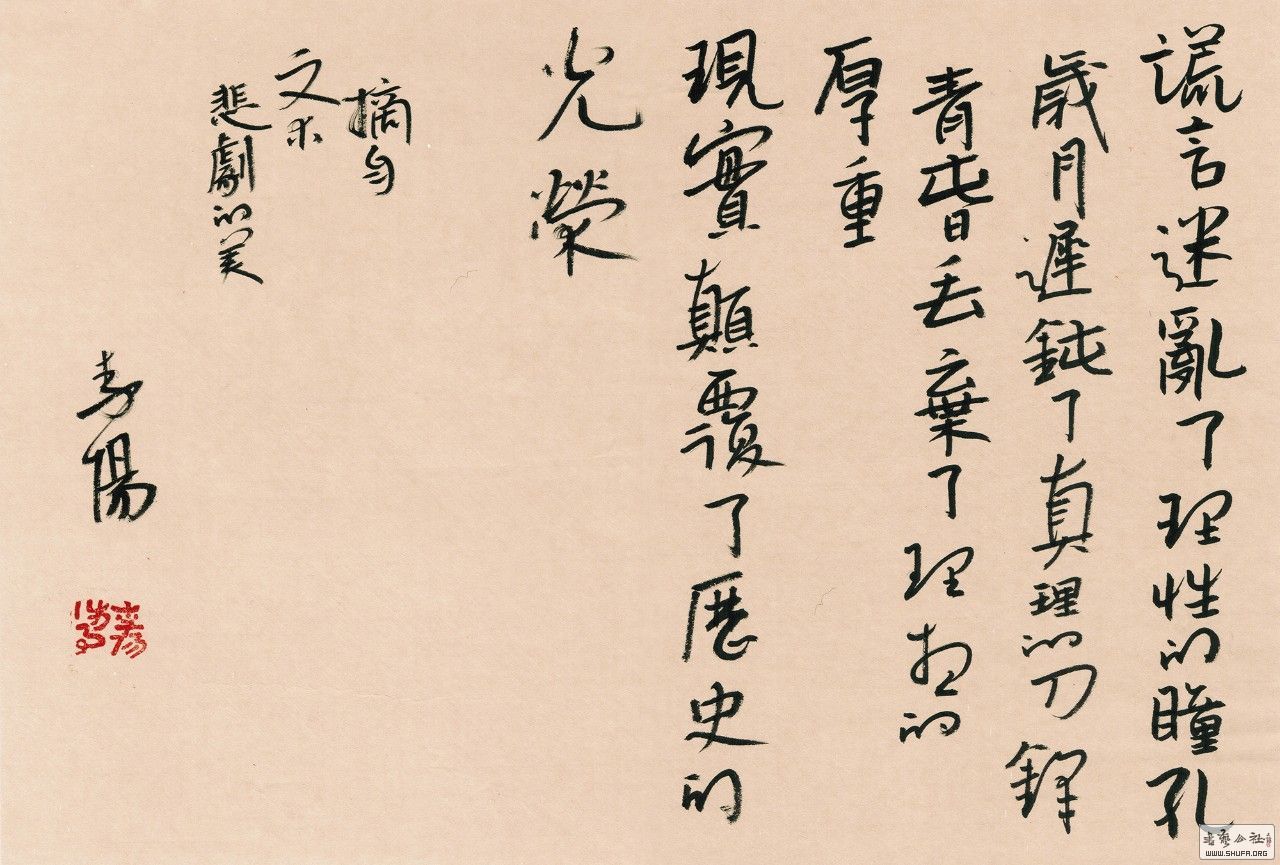 謊言迷亂了理性的瞳孔
歲月遲鈍了真理的刀鋒
青春丟棄了理想的
厚重
現實顛覆了歷史的
光榮
摘自
文
悲劇的美
陽
書藝公社
WWW.SHUFA.ORG